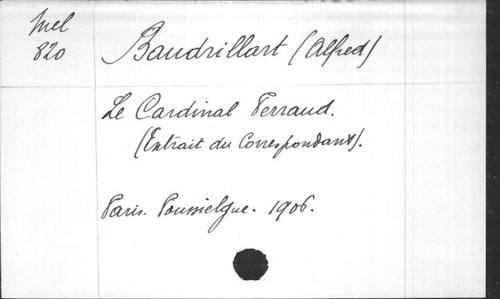 Mel
820
Baudrillart (Alfred)
Le Cardinal Perraud.
(Extrait du Correspondant).
Paris. Poussielgue. 1906.